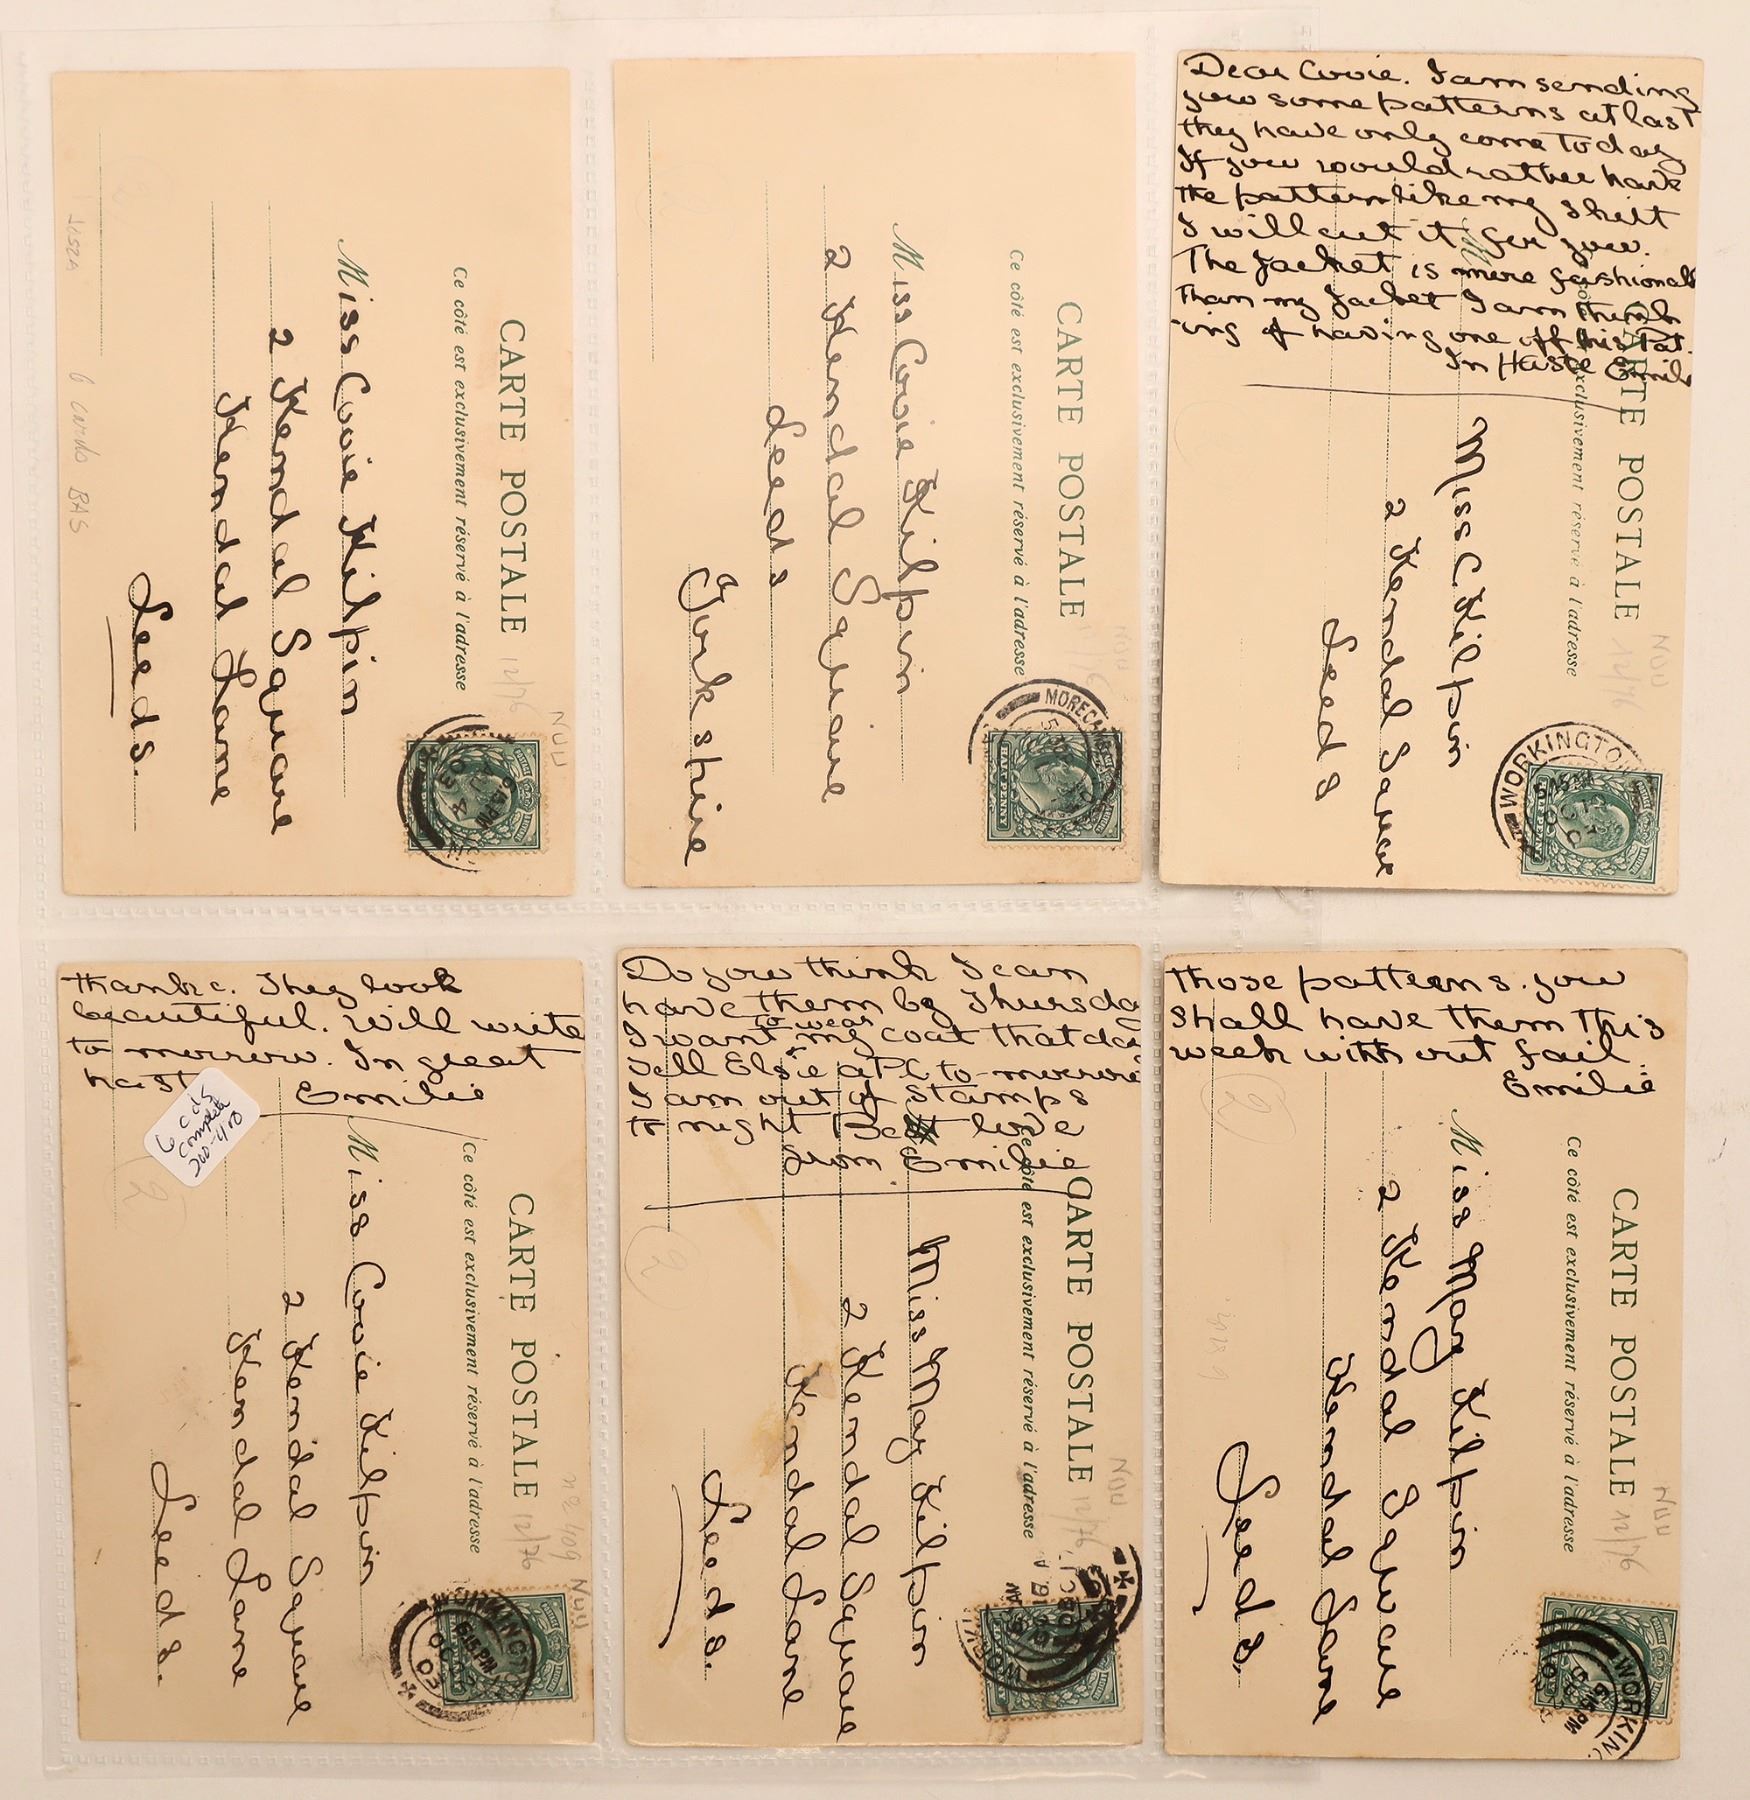 CARTE POSTALE
Ce côté est exclusivement réservé à l'adresse
12/76
Miss Covie Kilpin
2 Kendal Square
Kendal Lane
Leeds.
6 cards BAS
CARTE POSTALE
Ce côté est exclusivement réservé à l'adresse
Miss Covie Kilpin
2 Kendal Square
Leeds
Yorkshire
MORECA
HALFPENNY
Dear Covie. I am sending
you some patterns at last
they have only come To day
If you would rather have
the pattern like my skirt
I will cut it for you.
The Jacket is more fashionabl
than my Jacket I am think
ing of having one off this Pat.
In Haste Emili
CARTE POSTALE
Ce côté est exclusivement réservé à l'adresse
12/76
Miss C. Kilpin
2 Kendal Square
Leeds
WORKINGTO
thanks. They look
beautiful. Will write
to morrow. In great
hast
Emilie
6 cds
complete
200-400
CARTE POSTALE
Ce côté est exclusivement réservé à l'adresse
12/76
Miss Covie Kilpin
2 Kendal Square
Kendal Lane
Leeds.
6 15 PM
OC
03
Do you think I can
have them by Thursda
to wear
I want my coat that day
Tell Elsie a P.C to-morrow
I am out of stamps
to night Best love
from Emilie
CARTE POSTALE
Ce côté est exclusivement réservé à l'adresse
12/76
Miss May Kilpin
2 Kendal Square
Kendal Lane
Leeds.
those patterns. you
shall have them this
week with out fail.
Emilie
CARTE POSTALE
Ce côté est exclusivement réservé à l'adresse
12/76
Miss May Kilpin
2 Kendal Square
Kendal Lane
Leeds.
WORKING